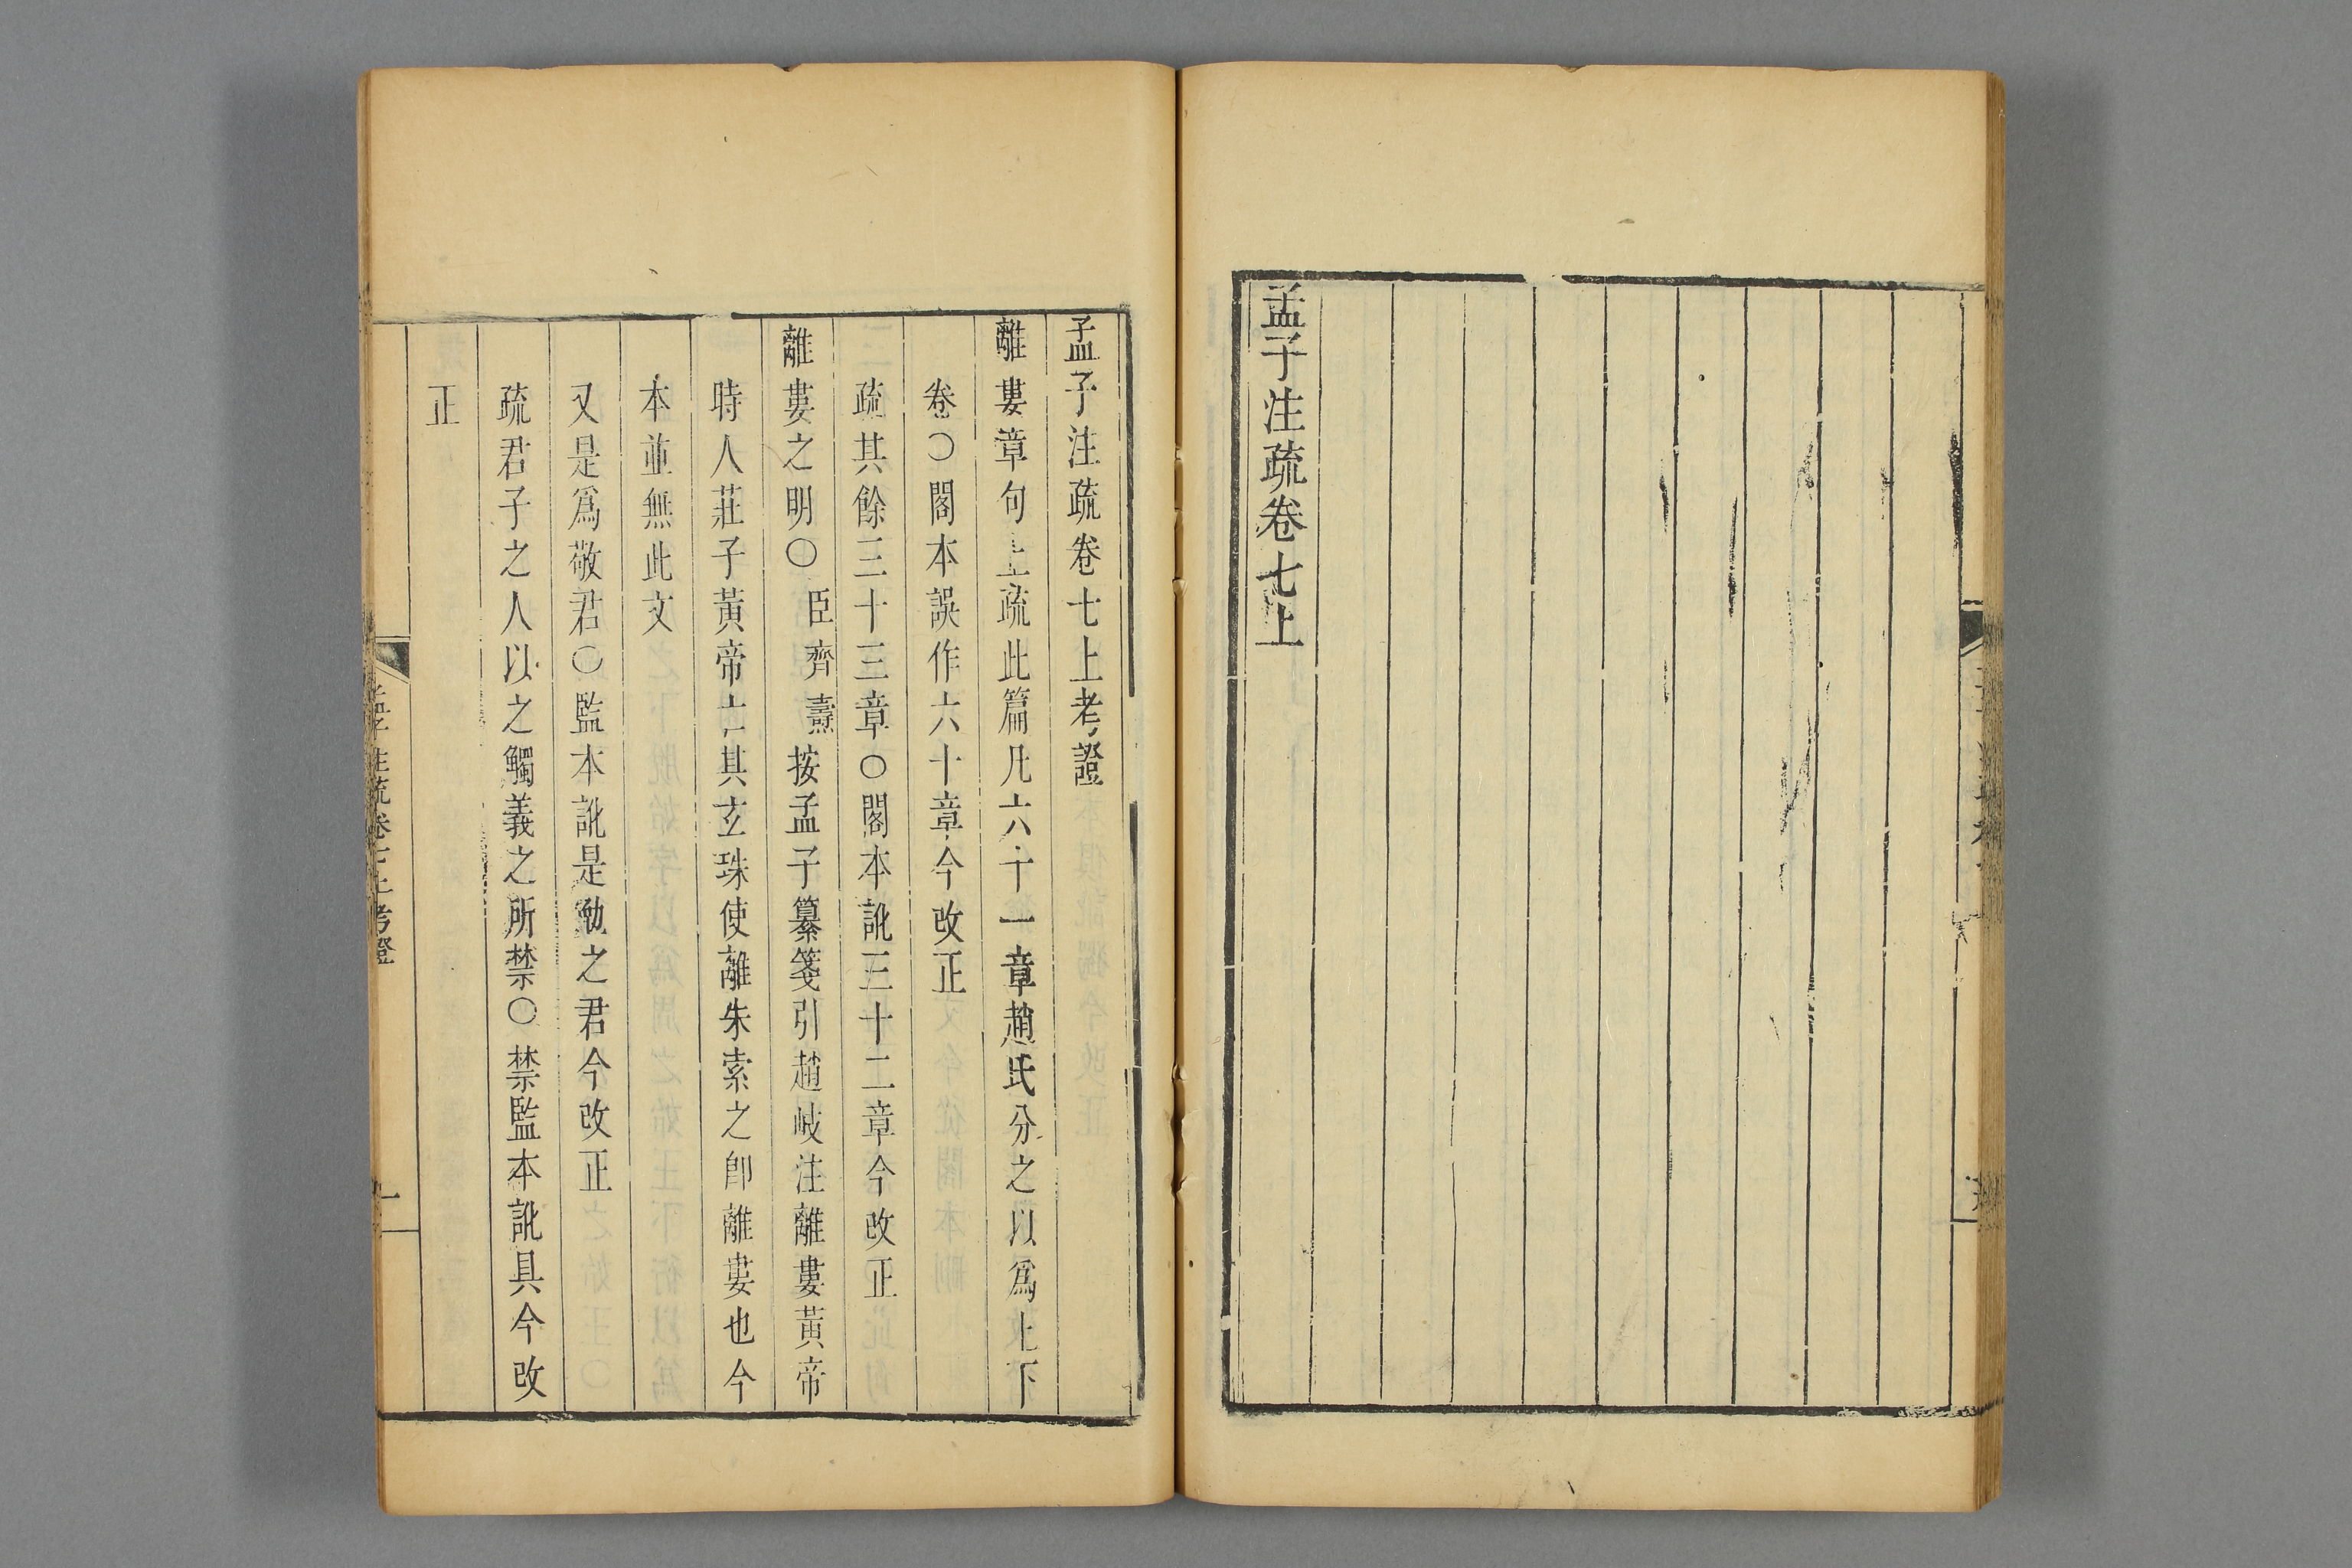 孟子注疏卷七上
孟子注疏卷七上考證
離婁章句上疏此篇凡六十一章趙氏分之以爲上下
卷○閣本誤作六十章今改正
疏其餘三十三章○閣本訛三十二章今改正
離婁之明○臣齊燾按孟子纂箋引趙岐注離婁黃帝
時人莊子黃帝亡其玄珠使離朱索之卽離婁也今
本並無此文
又是爲敬君○監本訛是勉之君今改正
疏君子之人以之觸義之所禁○禁監本訛具今改
正
孟子注疏卷七上考證
一